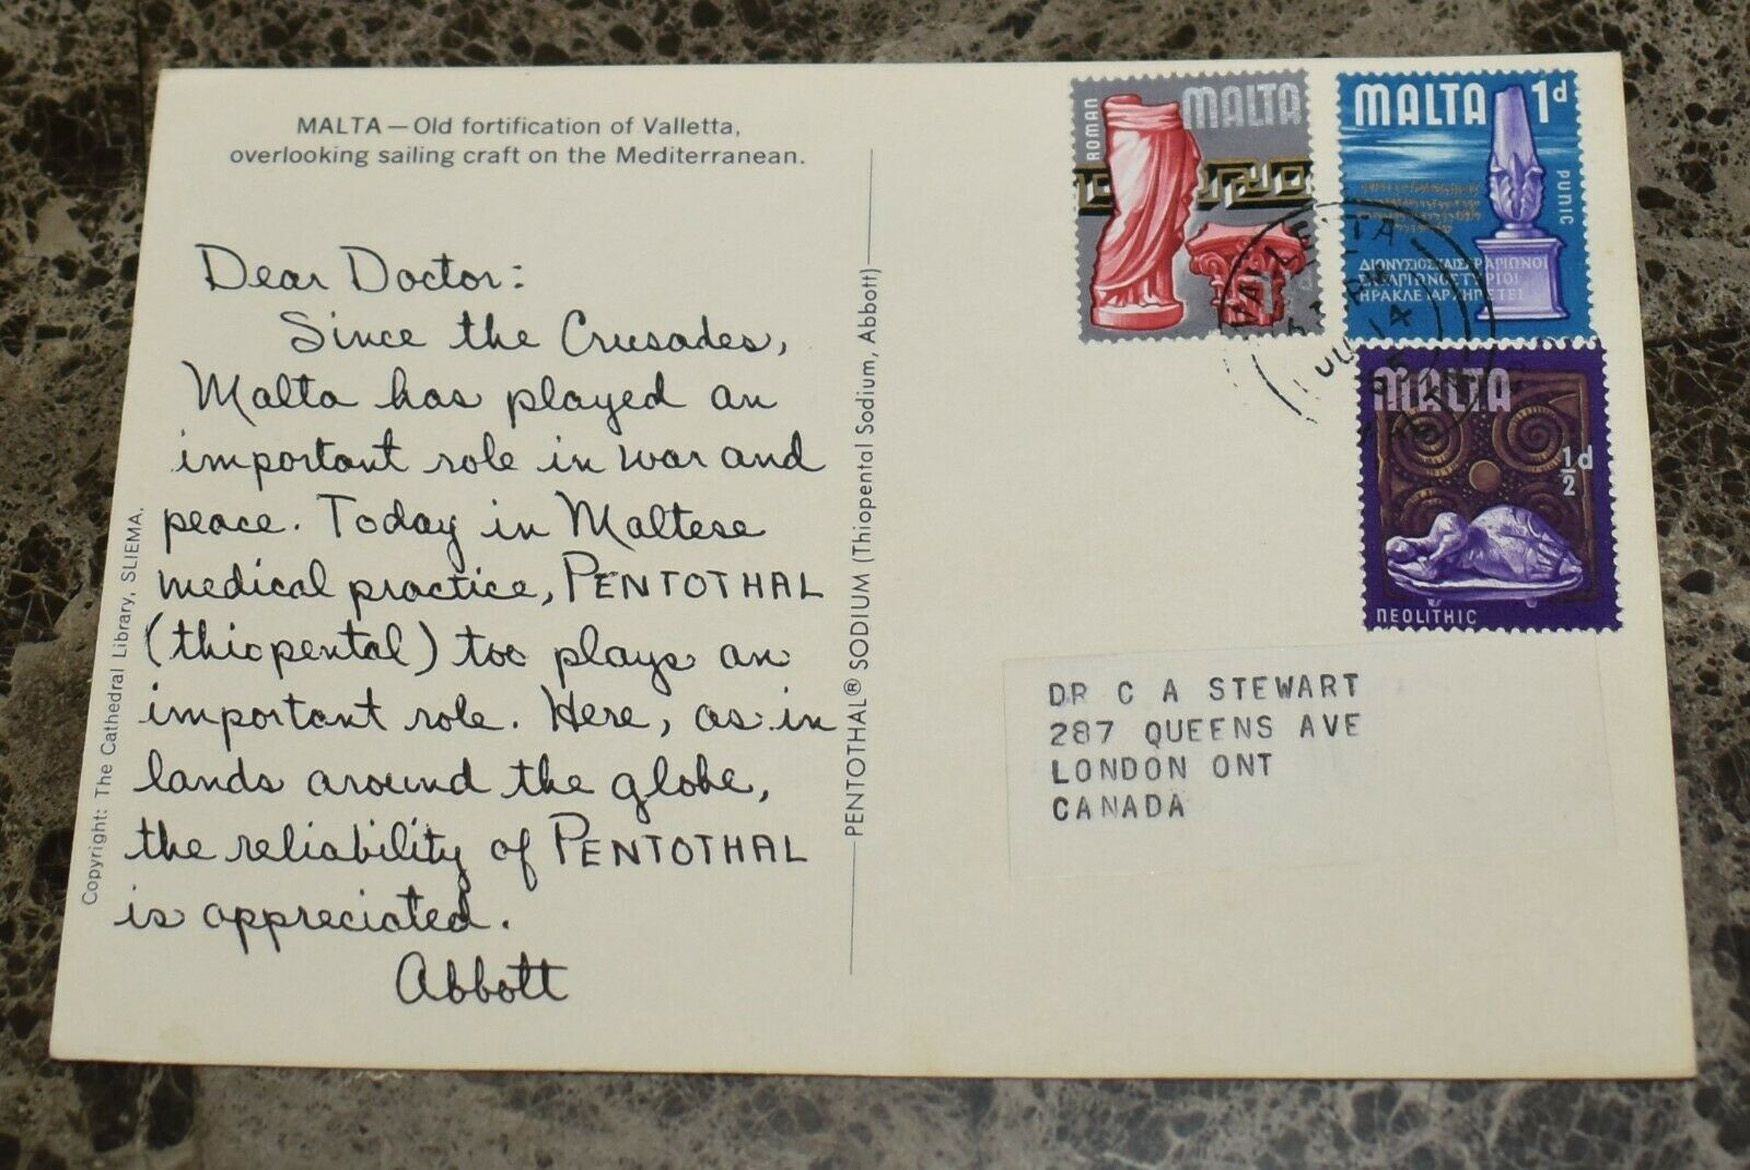 MALTA — Old fortification of Valletta,
overlooking sailing craft on the Mediterranean.
Dear Doctor:
Since the Crusades,
Malta has played an
important role in war and
peace. Today in Maltese
medical practice, PENTOTHAL
(thiopental) too plays an
important role. Here, as in
lands around the globe,
the reliability of PENTOTHAL
is appreciated.
Abbott
Copyright: The Cathedral Library, SLIEMA.
PENTOTHAL® SODIUM (Thiopental Sodium, Abbott)
ROMAN
MALTA
MALTA 1d
PUNIC
ΗΡΑΚΛΕΙ ΑΡΧΗΓΕΤΕΙ
VALLETTA
PM
14
MALTA
½d
NEOLITHIC
DR C A STEWART
287 QUEENS AVE
LONDON ONT
CANADA